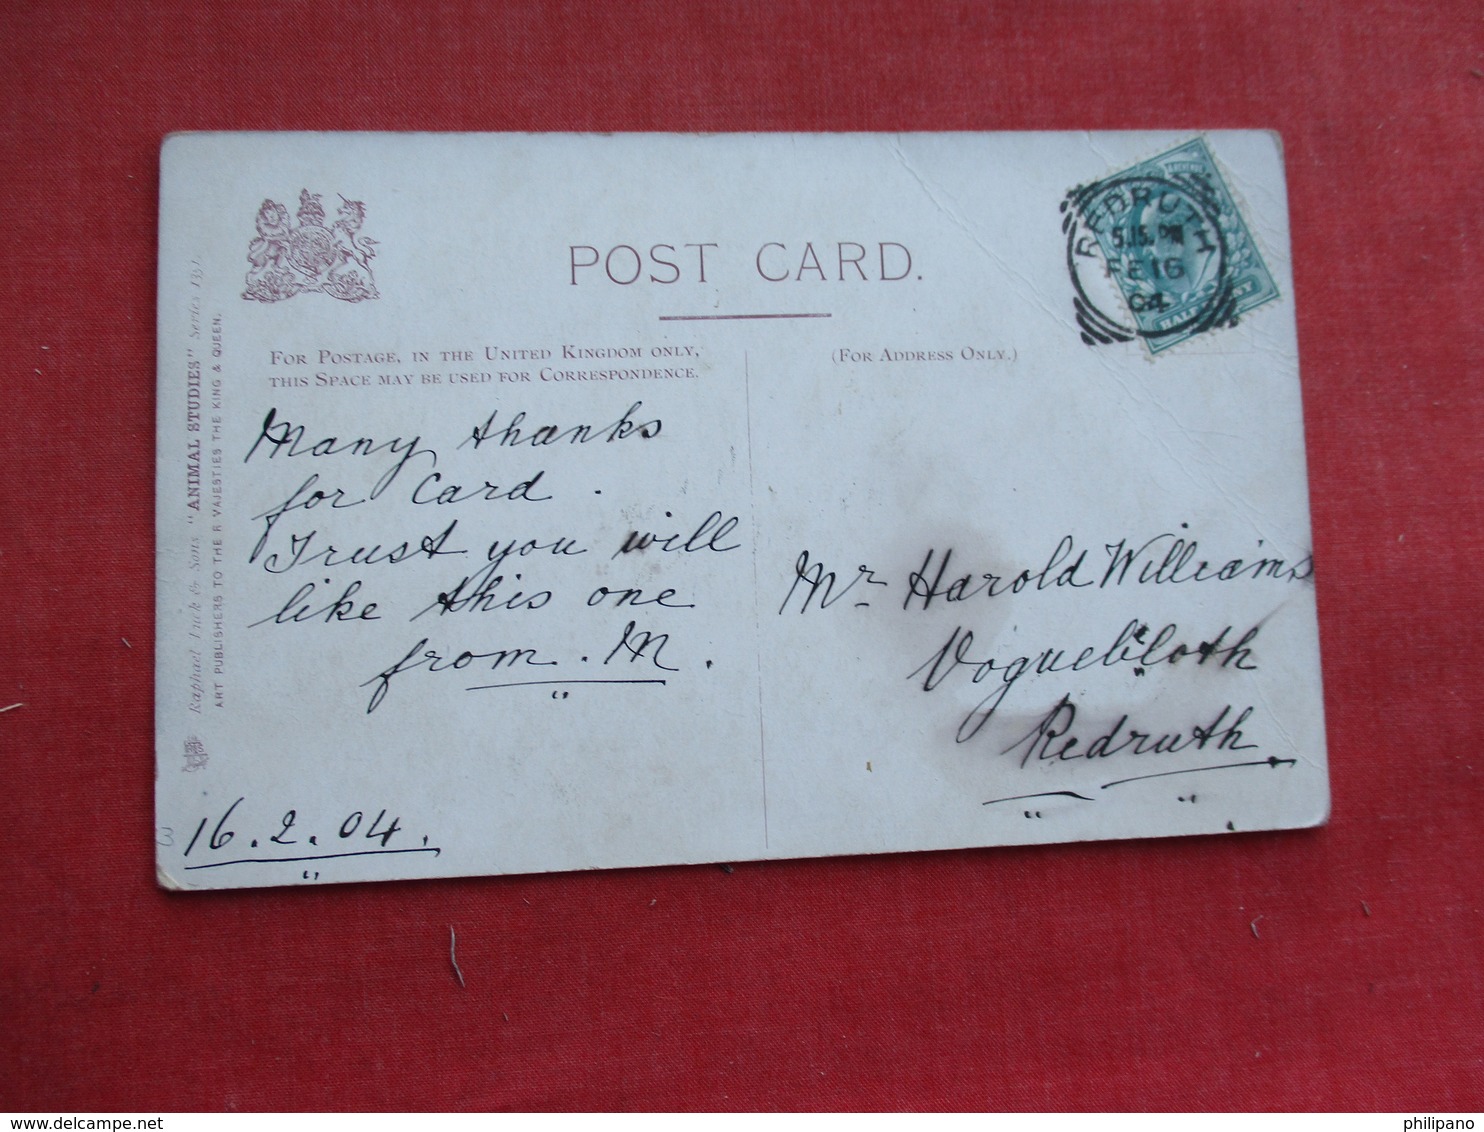 POST CARD.
FOR POSTAGE, IN THE UNITED KINGDOM ONLY,
THIS SPACE MAY BE USED FOR CORRESPONDENCE.
(FOR ADDRESS ONLY.)
REDRUTH
5.15. PM
FE 16
04
HALF PENNY
Many thanks
for Card.
Trust you will
like this one
from. M.
16.2.04.
Mr Harold Williams
Redruth
Raphael Tuck & Sons "ANIMAL STUDIES" Series
ART PUBLISHERS TO THE R MAJESTIES THE KING & QUEEN.
www.delcampe.net
philipano